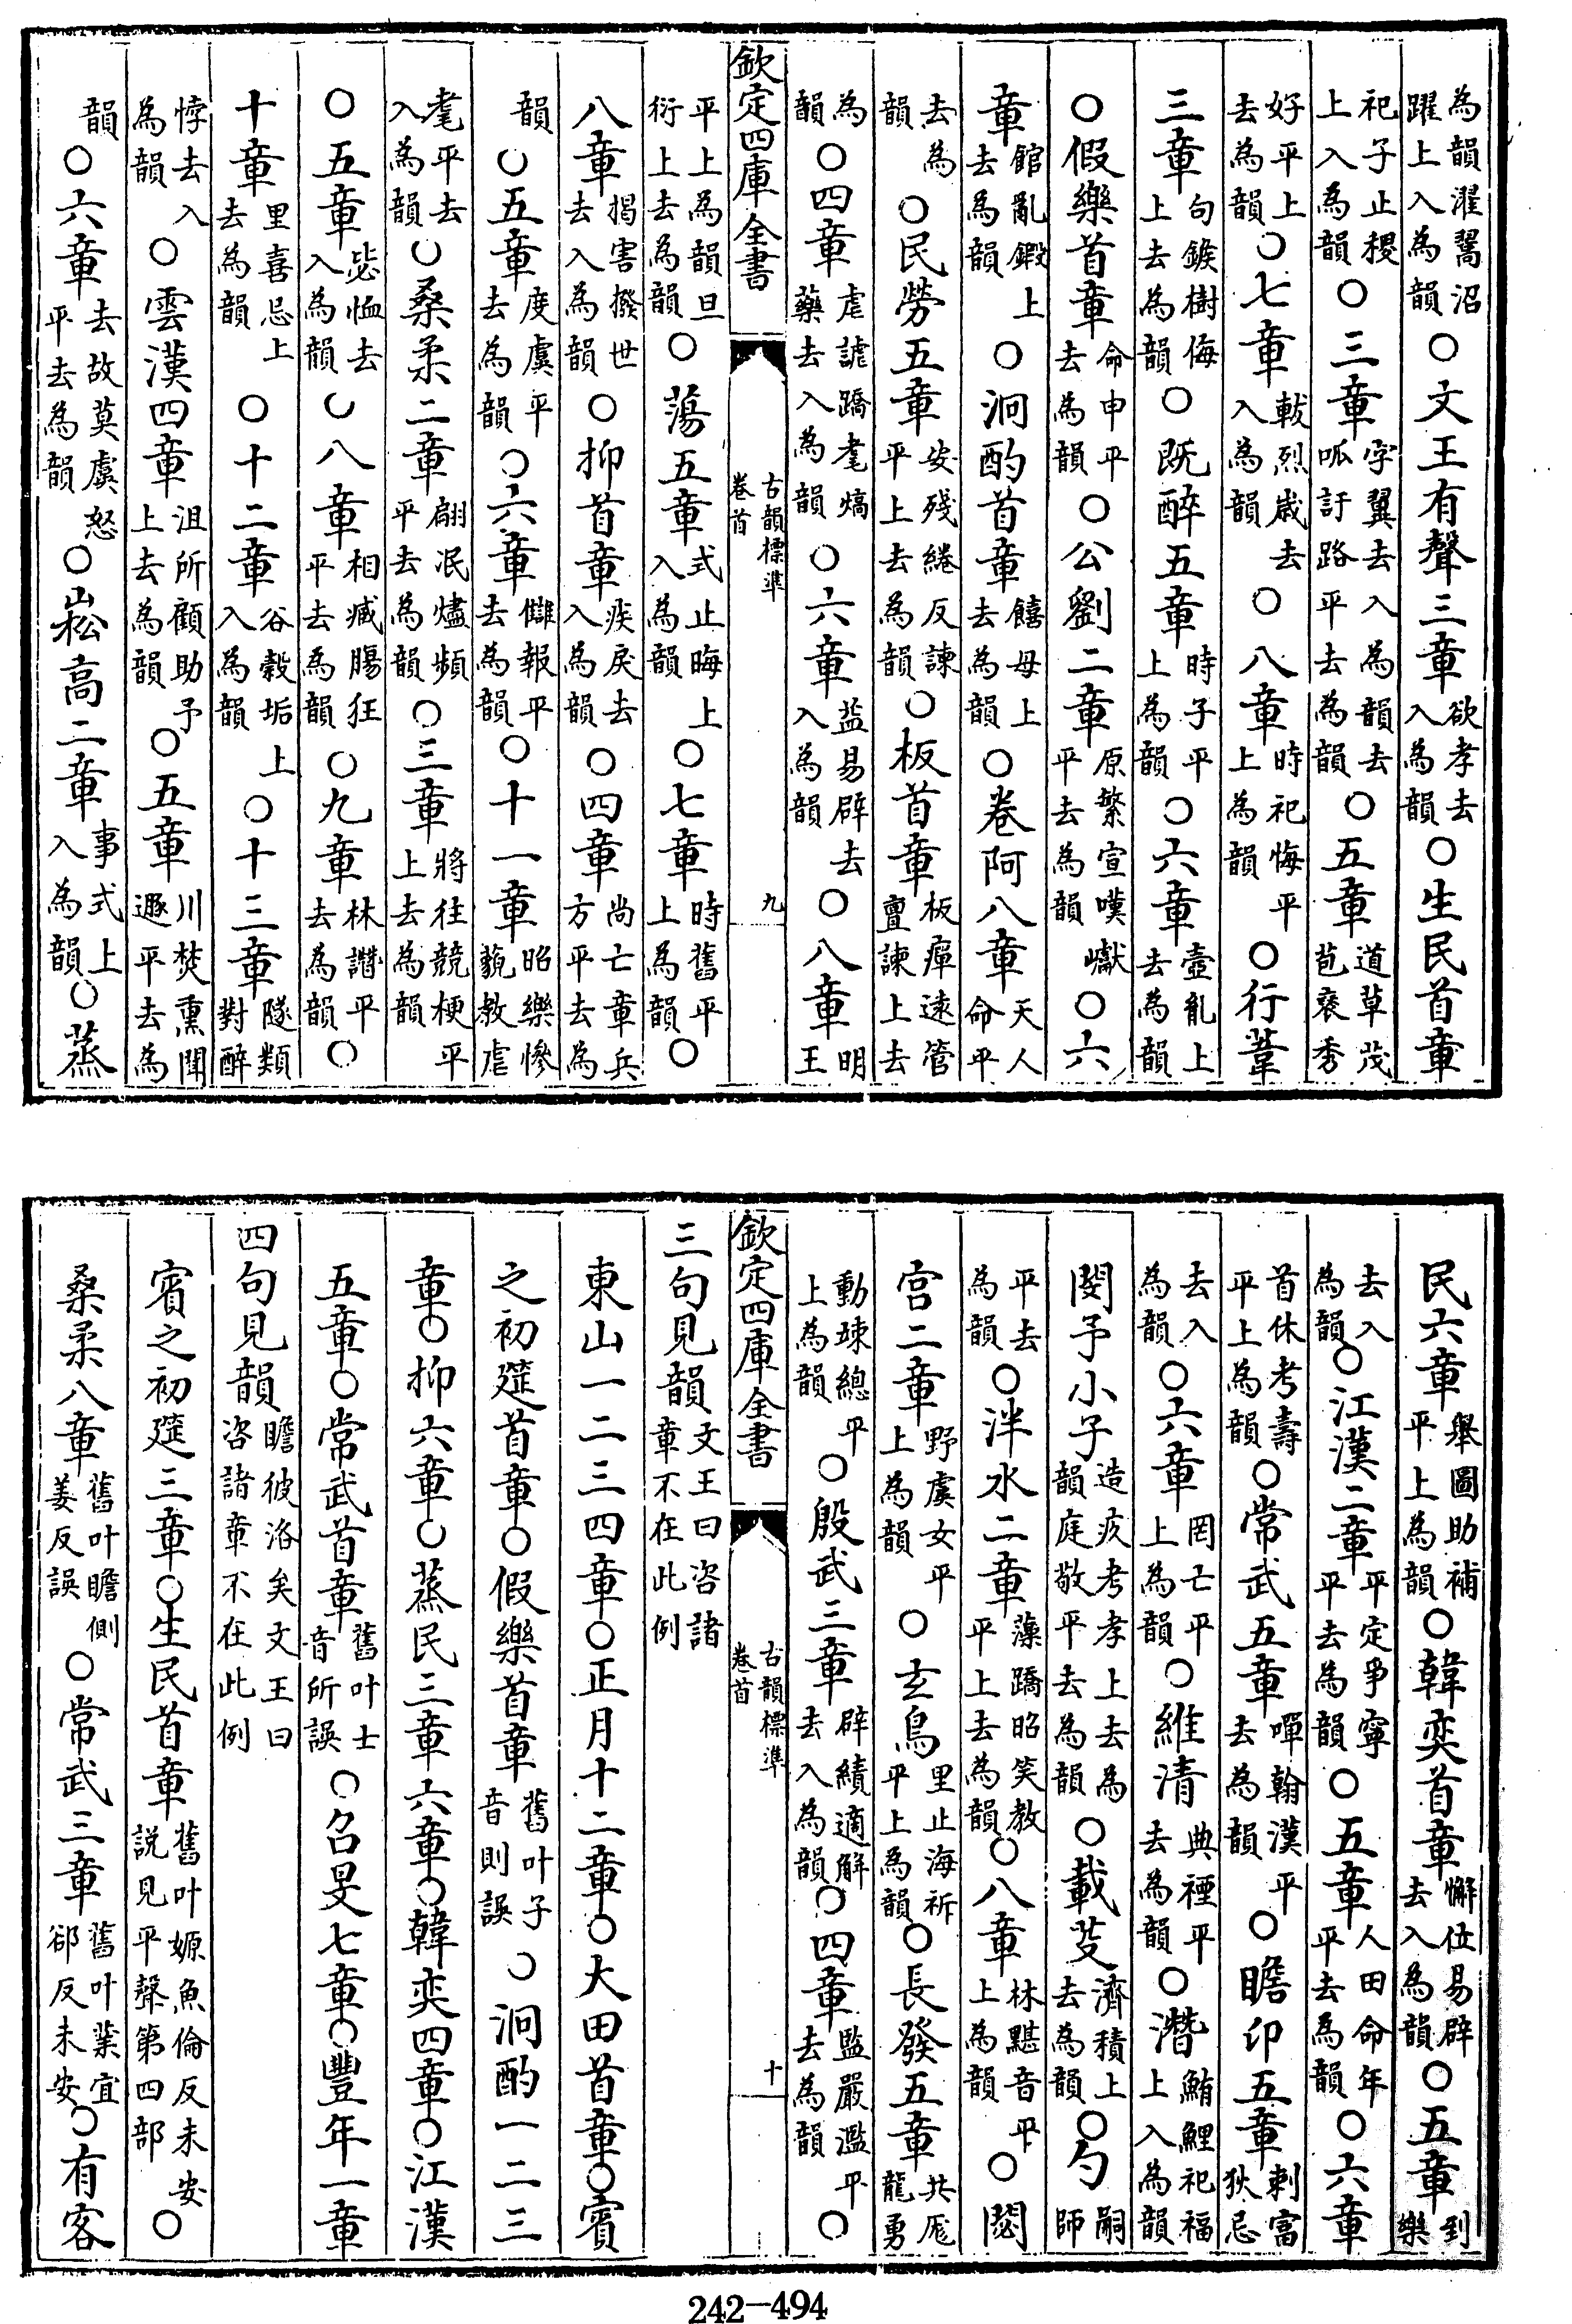 為韻濯翯沼躍上入為韻○文王有聲三章欲孝去入為韻○生民首章
祀子止稷上入為韻○三章字翼去入為韻去呱訏路平去為韻○五章道草茂苞褎秀
好平上去為韻○七章軷烈歲去入為韻○八章時祀悔平上為韻○行葦
三章句鍭樹侮上去為韻○既醉五章時子平上為韻○六章壼胤上去為韻
○假樂首章命申平去為韻○公劉二章原繁宣嘆巘平去為韻○六
章館亂鍛上去為韻○泂酌首章饎母上去為韻○卷阿八章天人命平
去為韻○民勞五章安殘綣反諫平上去為韻○板首章板癉遠管亶諫上去
為韻○四章虐謔蹻耄熇藥去入為韻○六章益易辟去入為韻○八章明王
欽定四庫全書
古韻標準
卷首
九
平上為韻旦衍上去為韻○蕩五章式止晦上入為韻○七章時舊平上為韻○
八章揭害撥世去入為韻○抑首章疾戾去入為韻○四章尚亡章兵方平去為
韻○五章度虞平去為韻○六章讎報平去為韻○十一章昭樂慘藐教虐
耄平去入為韻○桑柔二章翩泯燼頻平去為韻○三章將往競梗平上去為韻
○五章毖恤去入為韻○八章相臧腸狂平去為韻○九章林譖平去為韻○
十章里喜忌上去為韻○十二章谷穀垢上入為韻○十三章隧類對醉
悖去入為韻○雲漢四章沮所顧助予上去為韻○五章川焚熏聞遯平去為
韻○六章去故莫虞怒平去為韻○崧高二章事式上入為韻○蒸
民六章舉圖助補平上為韻○韓奕首章懈位易辟去入為韻○五章到樂
去入為韻○江漢二章平定爭寧平去為韻○五章人田命年平去為韻○六章
首休考壽平上為韻○常武五章嘽翰漢平去為韻○瞻卬五章刺富狄忌
去入為韻○六章罔亡平上為韻○維清典禋平去為韻○潛鮪鯉祀福上入為韻
閔予小子造疚考孝上去為韻庭敬平去為韻○載芟濟積上去為韻○勺嗣師
平去為韻○泮水二章藻蹻昭笑教平上去為韻○八章林黮音平上為韻○閟
宫二章野虞女平上為韻○玄鳥里止海祈平上為韻○長發五章共厖龍勇
動竦總平上為韻○殷武三章辟績適解去入為韻○四章監嚴濫平去為韻○
欽定四庫全書
古韻標準
卷首
十
三句見韻文王曰咨諸章不在此例
東山一二三四章○正月十二章○大田首章○賓
之初筵首章○假樂首章舊叶子音則誤○泂酌一二三
章○抑六章○蒸民三章六章○韓奕四章○江漢
五章○常武首章舊叶士音所誤○召旻七章○豐年一章
四句見韻瞻彼洛矣文王曰咨諸章不在此例
賓之初筵三章○生民首章舊叶嫄魚倫反未安說見平聲第四部○
桑柔八章舊叶瞻側姜反誤○常武三章舊叶業宜郤反未安○有客
242-494